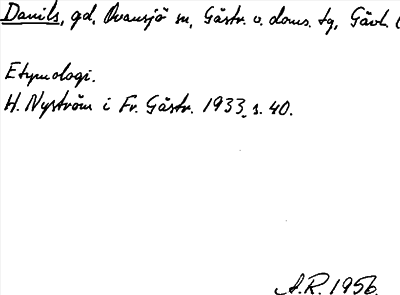 Danils, gd, Ovansjö sn, Gästr. v. doms. tg, Gävl. l
Etymologi.
H. Nyström i Fr. Gästr. 1933, s. 40.
A.R. 1956.